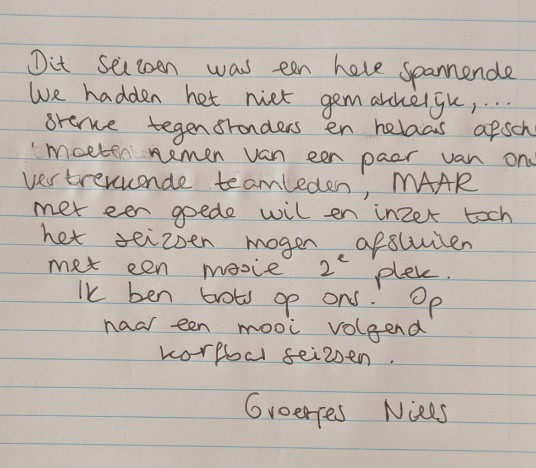 Dit seizoen was een hele spannende
We hadden het niet gemakkelijk,...
sterke tegenstanders en helaas afsch
moeten nemen van een paar van ons
vertrekkende teamleden, MAAR
met een goede wil en inzet toch
het seizoen mogen afsluiten
met een mooie 2e plek.
Ik ben trots op ons. Op
naar een mooi volgend
korfbal seizoen.
Groetjes Niels